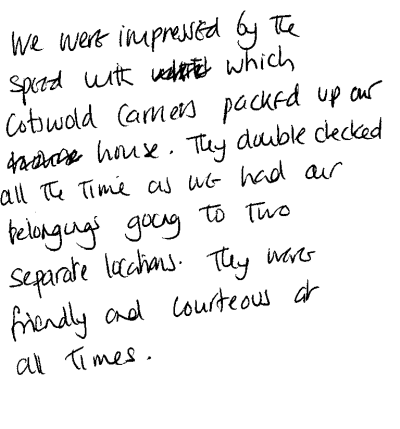 We were impressed by the
speed with which
Cotswold Carriers packed up our
house. They double checked
all the time as we had our
belongings going to two
separate locations. They were
friendly and courteous at
all times.